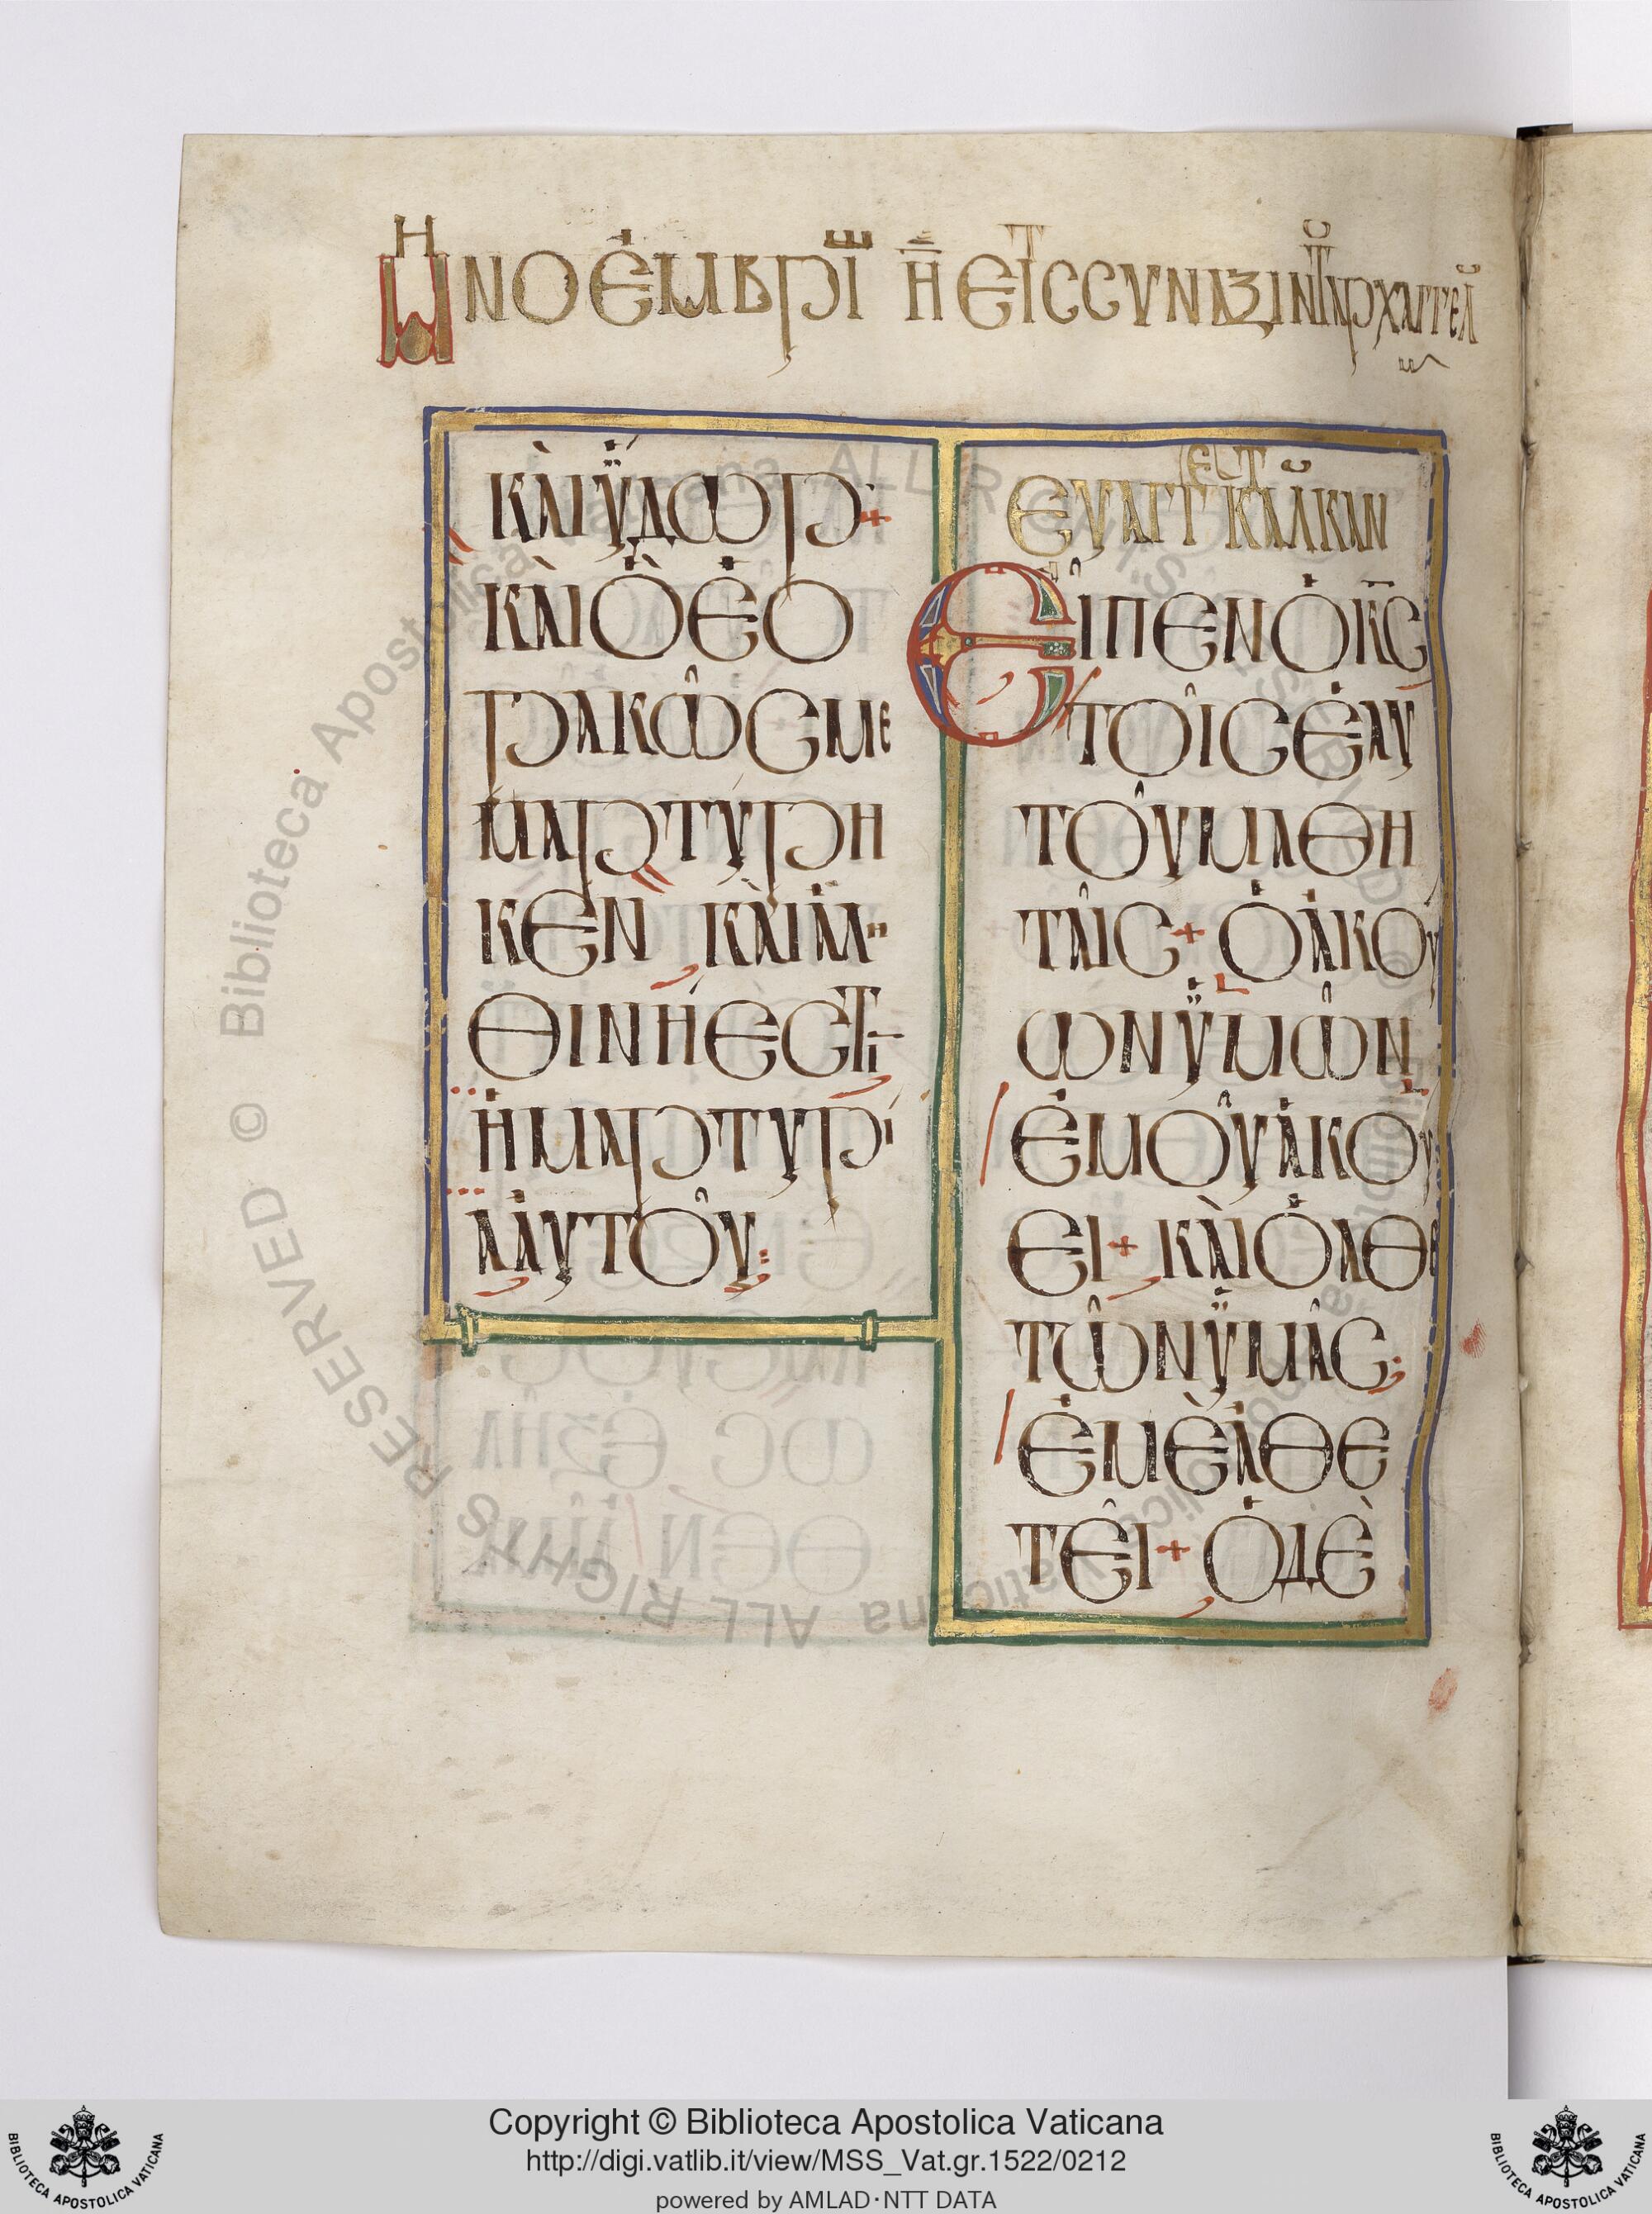 ΜΗΝΟΕΜΒΡΙΩ Η ΕΙΣ Τ ΣΥΝΑΞΙΝ ΤΑΡΧΑΓΓΕΛ
ΚΑΙ ΥΔΩΡ·
ΚΑΙ Ο ΕΟ
ΡΑΚΩΣ ΜΕ
ΜΑΡΤΥΡΗ
ΚΕΝ ΚΑΙ ΑΛΗ
ΘΙΝΗ ΕΣΤΙ
Η ΜΑΡΤΥΡΙ
Α ΑΥΤΟΥ:
ΕΥΑΓΓ ΕΚ Τ Κ ΛΚΑΝ
ΕΙΠΕΝ Ο ΚΣ
ΤΟΙΣ ΕΑΥ
ΤΟΥ ΜΑΘΗ
ΤΑΙΣ + Ο ΑΚΟΥ
ΩΝ ΥΜΩΝ
ΕΜΟΥ ΑΚΟΥ
ΕΙ + ΚΑΙ Ο ΑΘΕ
ΤΩΝ ΥΜΑΣ:
ΕΜΕ ΑΘΕ
ΤΕΙ + Ο ΔΕ
© Biblioteca Apostolica Vaticana ALL RIGHTS RESERVED © Biblioteca Apostolica Vaticana ALL RIGHTS RESERVED
Copyright © Biblioteca Apostolica Vaticana
http://digi.vatlib.it/view/MSS_Vat.gr.1522/0212
powered by AMLAD·NTT DATA
BIBLIOTECA APOSTOLICA VATICANA
BIBLIOTECA APOSTOLICA VATICANA